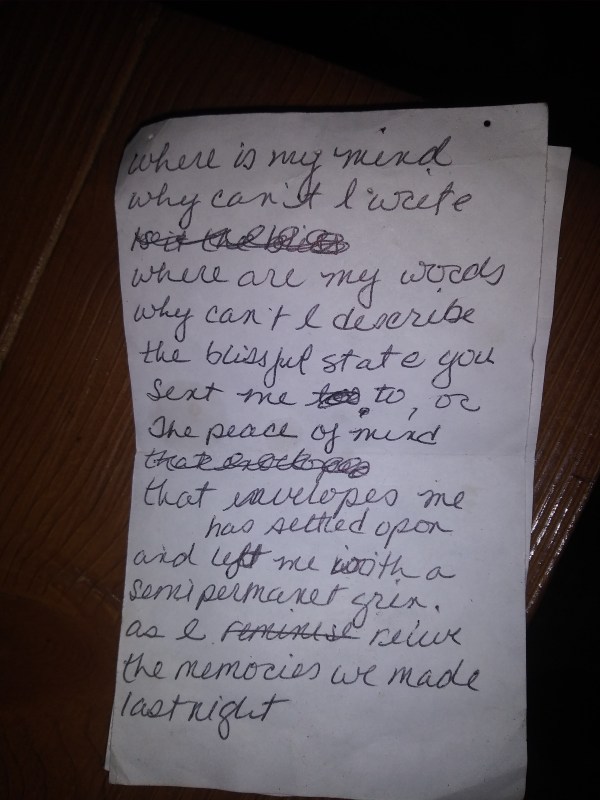 where is my mind
why can't I write
where are my words
why can't I describe
the blissful state you
sent me to, or
The peace of mind
that envelopes me
has settled opon
and left me with a
semipermanet grin.
as I reminise relive
the memories we made
last night